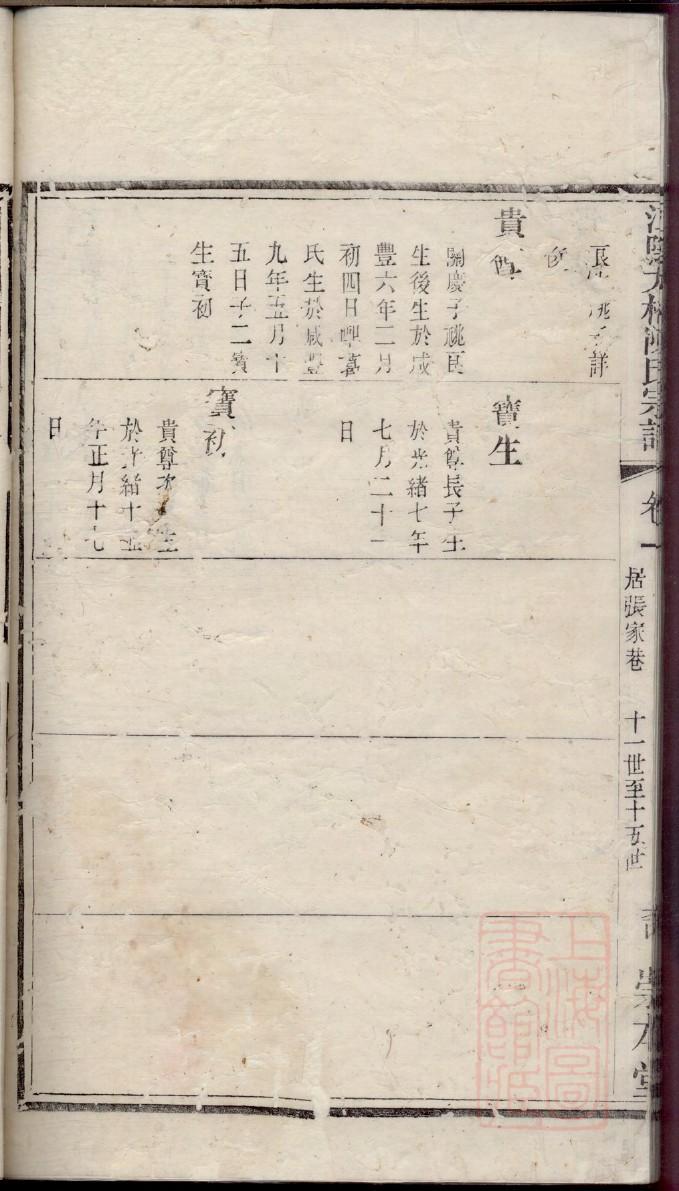 貴尊
關慶子祧長
生後生於咸
豐六年二月
初四日
氏生於咸豐
九年五月十
五日子二寶
生寶初
寶生
貴尊長子生
於光緒七年
七月二十一
日
寶初
貴尊次子生
於光緒十五
年正月十七
日
陳氏宗譜
卷一
居張家巷
十一世至十五世
崇本堂
上海圖
書館藏